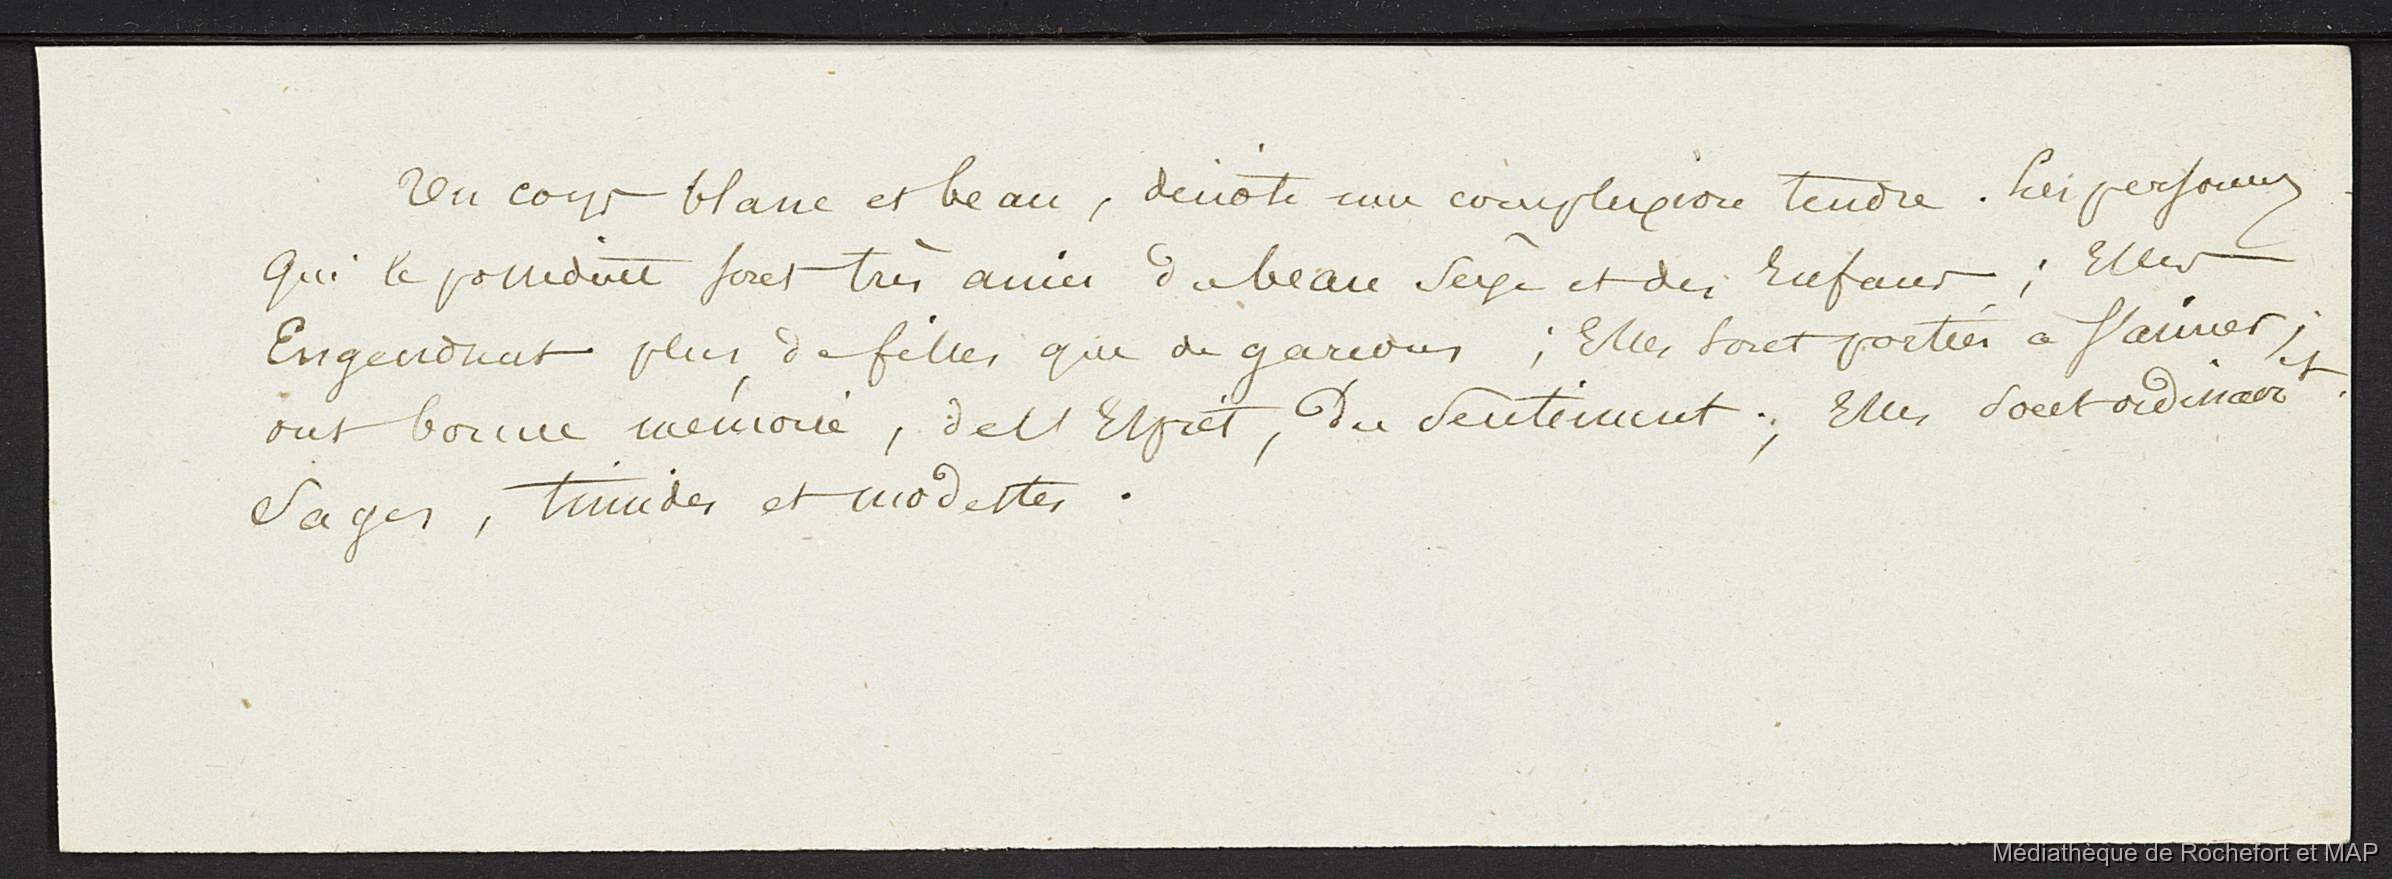 Un corps blanc et beau, dénote une complexion tendre. Les personnes
qui le possedent sont très amies du beau sexe et des Enfans ; Elles
Engendrent plus de filles que de garcons ; Elles sont portées a s'aimer ; et
ont bonne mémoire, de l'Esprit, du sentiment ; Elles sont ordinairt
Sages, timides et modestes.
Médiathèque de Rochefort et MAP